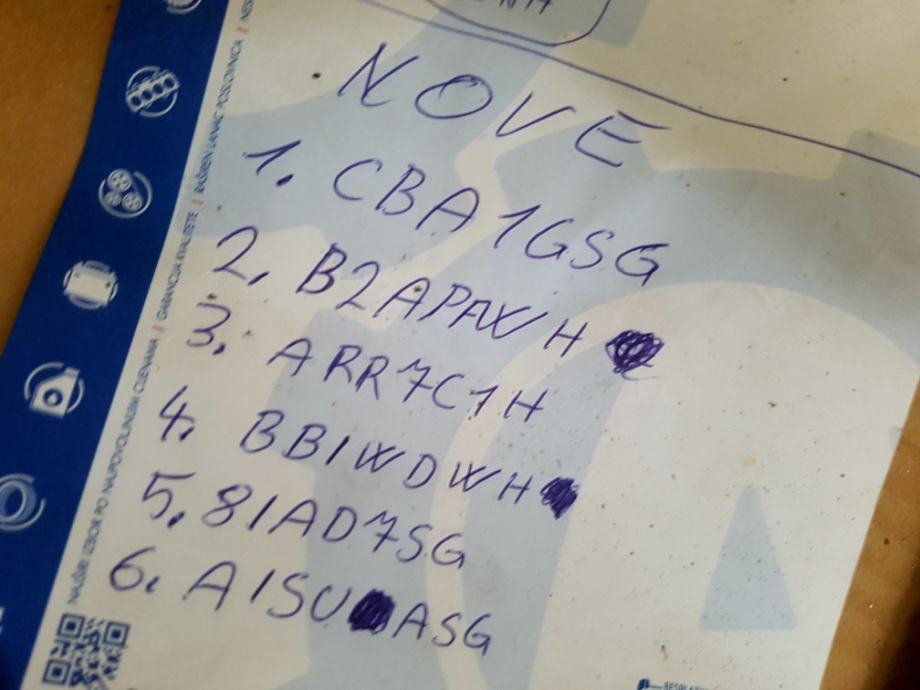 NOVE
1. CBA1GSG
2. B2APAWH
3. ARR7C1H
4. BB1WDWH
5. 81AD7SG
6. A1SUASG
NAJŠIRI IZBOR PO NAJPOVOLJNIJIM CIJENAMA | GARANCIJA KVALITETE | RAŠIREN LANAC POSLOVNICA